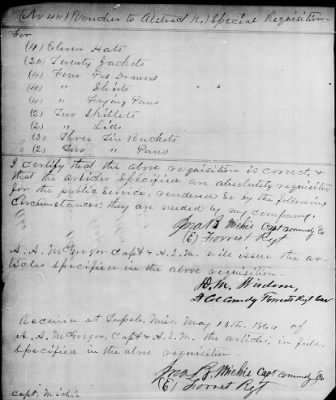 (No 40) Voucher to Abstract K, Special Requisition
For
(11) Eleven Hats
(20) Twenty Jackets
(4) Four Prs Drawers
(4) " Shirts
(4) " Frying Pans
(2) Two Skillets
(2) " Lids
(3) Three Tin Buckets
(2) Two " Pans
I certify that the above requisition is correct, &
that the articles specified are absolutely requisite
for the public service, rendered so by the following
circumstances: they are needed by my company.
Jno. P. Michie Capt commdg Co
(E) Forrest Regt
A. A. McGregor Capt & A.Q.M. will issue the ar-
ticles specified in the above requisition.
D. M. Wisdom,
Col Comdg Forrests Regt Cav
Received at Tupelo, Miss, May 13th, 1864 of
A. A. McGregor, Capt & A.Q.M. the articles, in full,
specified in the above requisition
Jno. P. Michie Capt commdg Co
(E) Forrest Regt
Capt, Michie